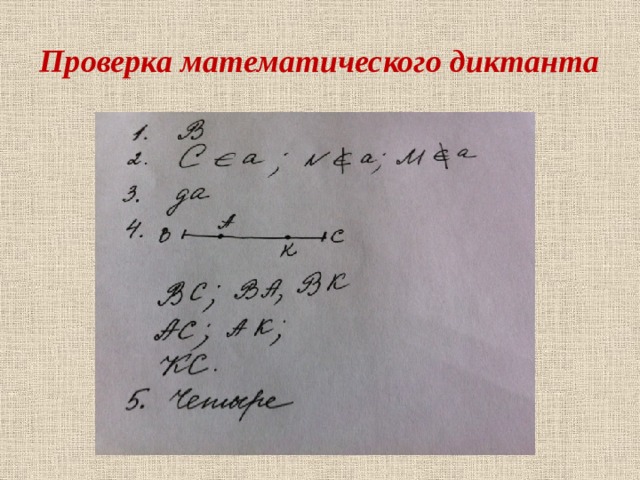 Проверка математического диктанта
1. В
2. С ∈ a ; N ∉ a; M ∉ a
3. да
4. В A K С
ВС; ВА, ВК
АС; АК;
КС.
5. Четыре